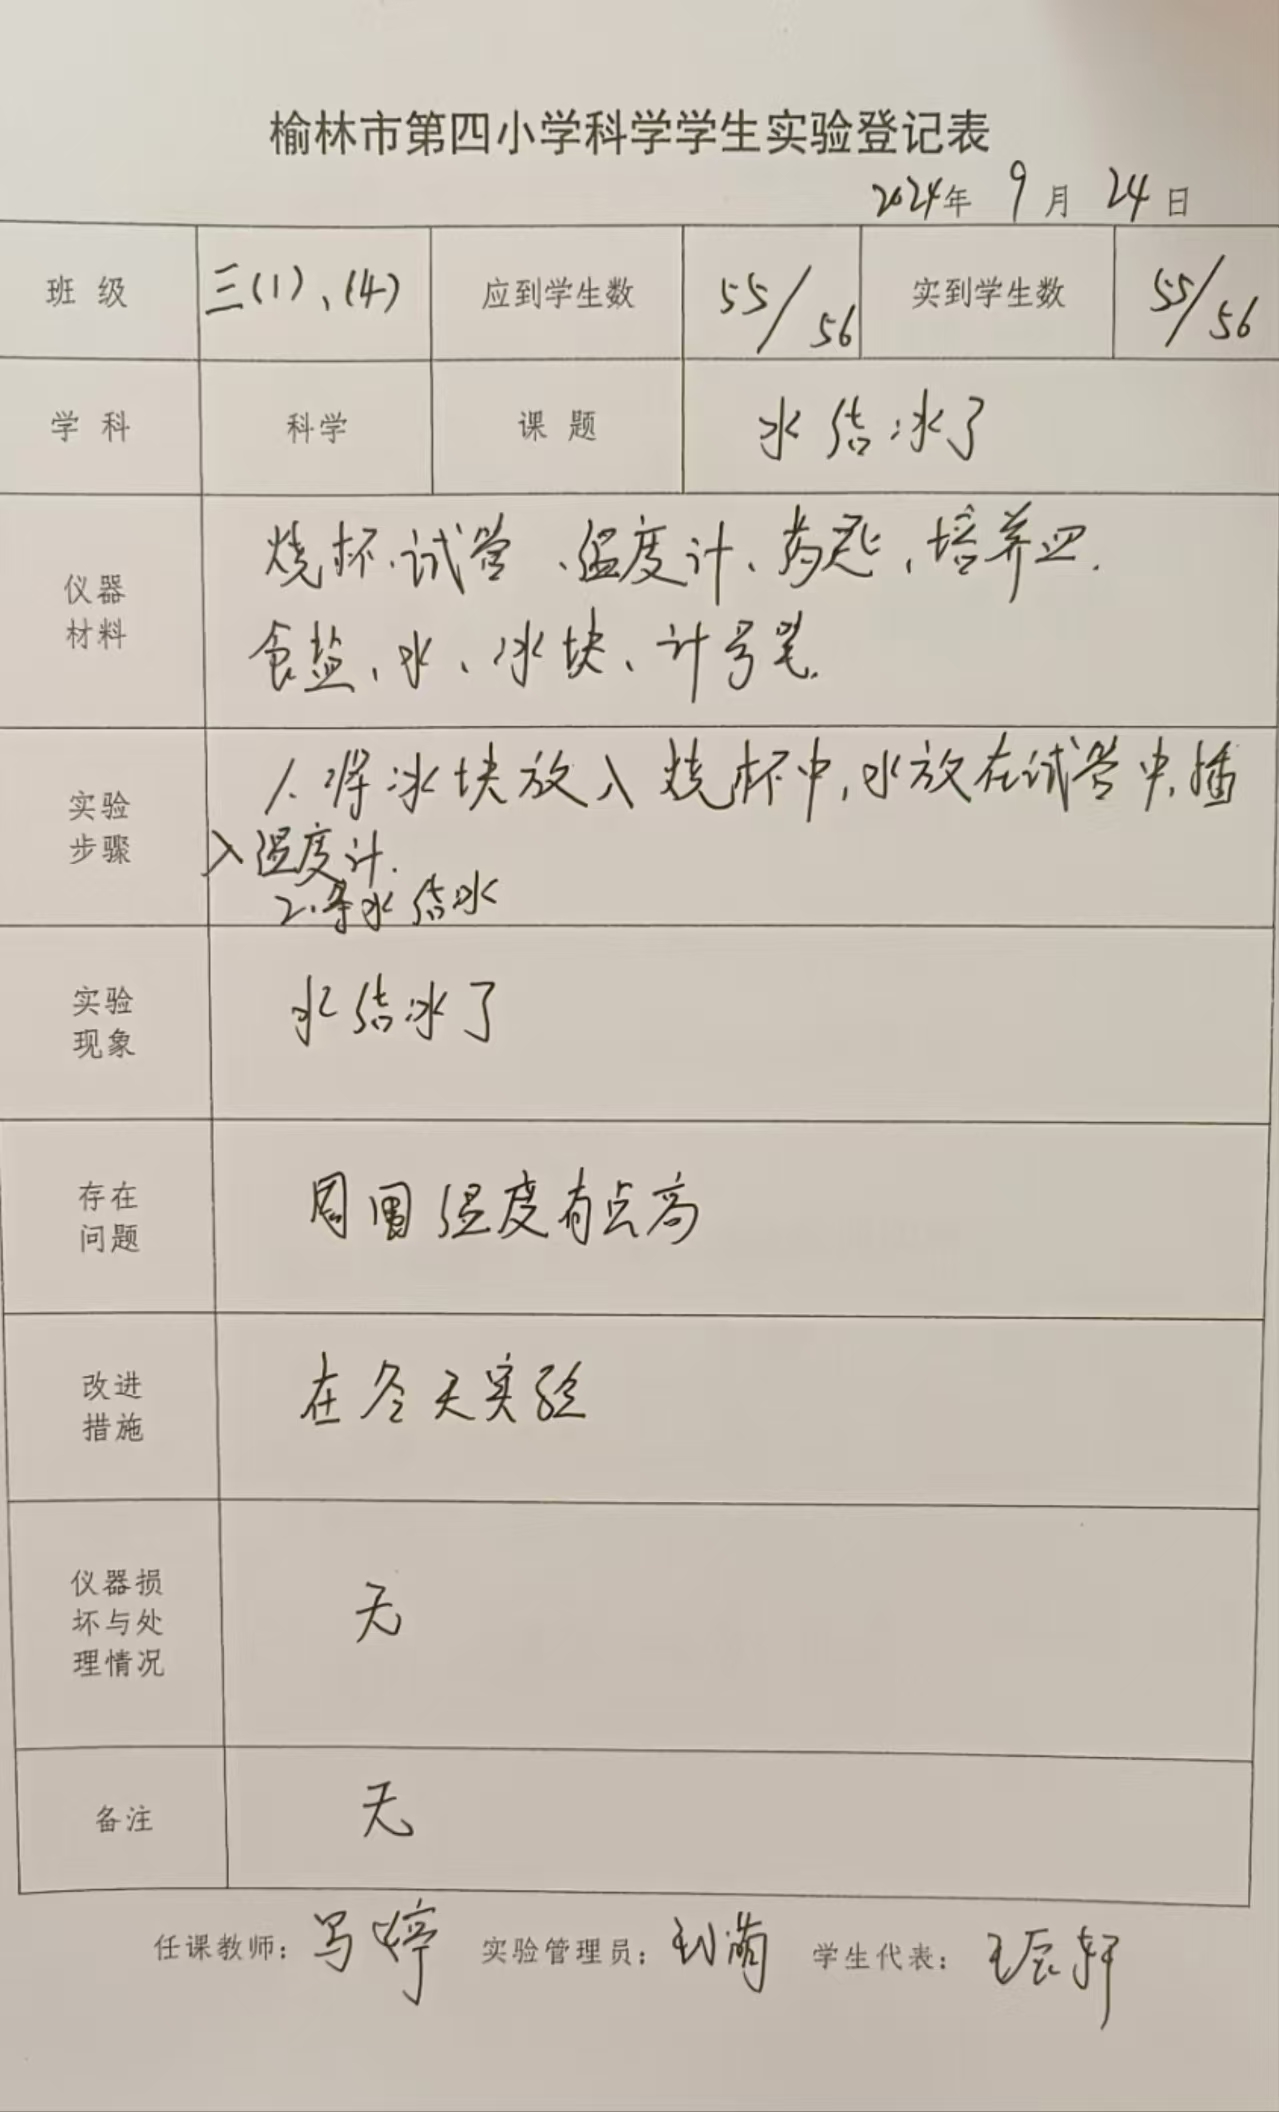 榆林市第四小学科学学生实验登记表
2024年 9月 24日
班级 三(1)、(4) 应到学生数 55/56 实到学生数 55/56
学科 科学 课题 水结冰了
仪器
材料
烧杯、试管、温度计、药匙、培养皿.
食盐、水、冰块、计号笔.
实验
步骤
1. 将冰块放入烧杯中,水放在试管中,插
入温度计.
2.等水结冰
实验
现象
水结冰了
存在
问题
周围温度有点高
改进
措施
在冬天实验
仪器损
坏与处
理情况
无
备注
无
任课教师: 马婷 实验管理员: 学生代表: 王辰轩